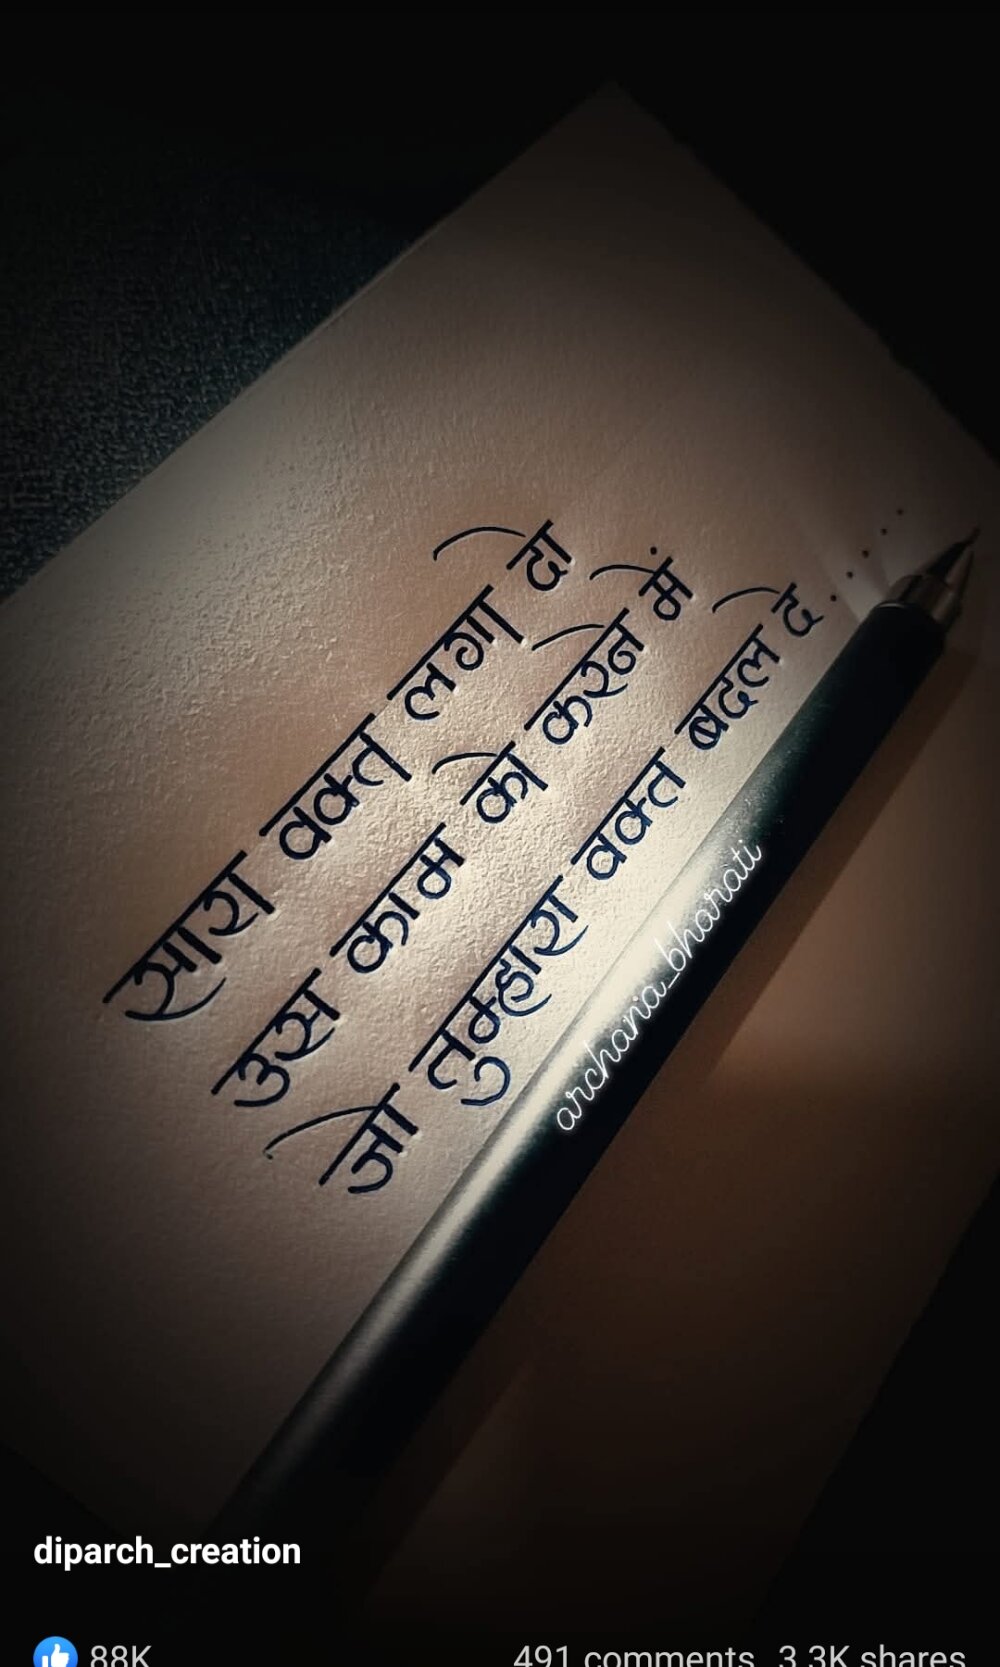 सारा वक्त लगा दो
उस काम को करने में
जो तुम्हारा वक्त बदल दे.....
archana_bharati
diparch_creation
88K
491 comments 3.3K shares